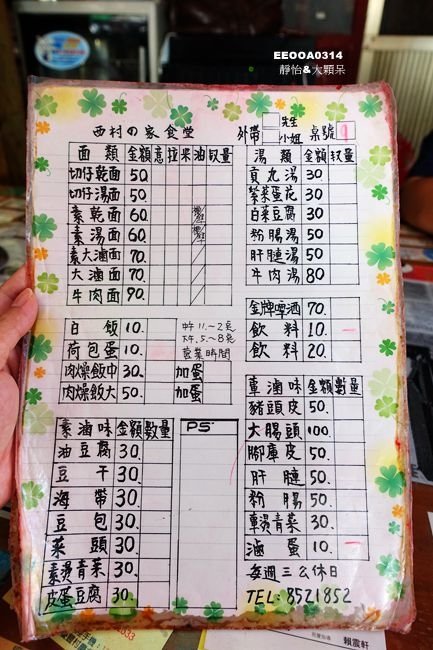 EEOOA0314
靜怡&大顆呆
西村の家食堂
外帶 先生 小姐 桌號 9
面類 金額 意 拉 米 油 數量
切仔乾面 50.
切仔湯面 50.
素乾面 60.
素湯面 60.
素大滷面 70.
大滷面 70.
牛肉面 90.
白飯 10.
荷包蛋 10.
肉燥飯中 30. 加蛋
肉燥飯大 50. 加蛋
中午11.~2点
下午.5.~8点
營業時間
素滷味 金額 數量
油豆腐 30.
豆干 30.
海帶 30.
豆包 30.
菜頭 30.
素燙青菜 30.
皮蛋豆腐 30.
PS
湯類 金額 數量
貢丸湯 30
紫菜蛋花 30
白菜豆腐 30
粉腸湯 50
肝腱湯 50
牛肉湯 80
金牌啤酒 70.
飲料 10.
飲料 20.
葷滷味 金額 數量
豬頭皮 50.
大腸頭 100.
腳庫皮 50.
肝腱 50.
粉腸 50.
葷燙青菜 30.
滷蛋 10.
每週三公休日
TEL:8521852
賴震軒